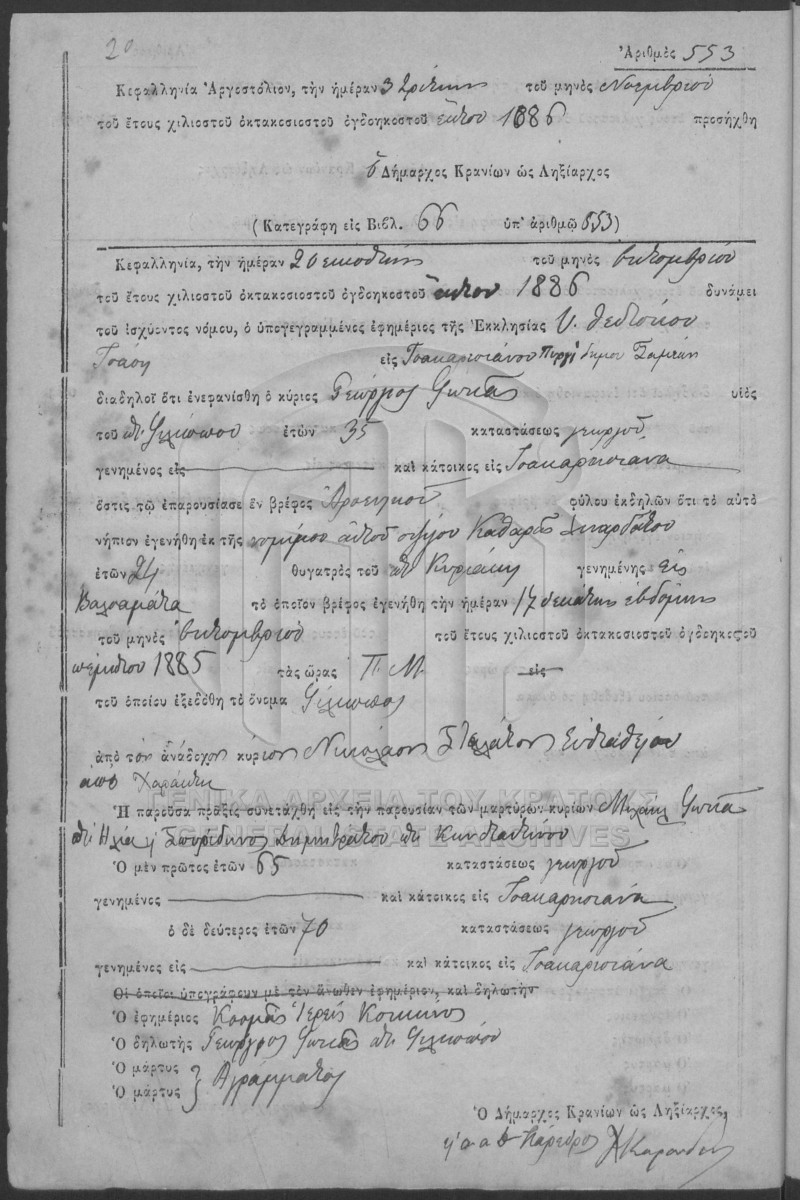 20
Ἀριθμὸς 553
Κεφαλληνία Ἀργοστόλιον, τὴν ἡμέραν 3 Τρίτην τοῦ μηνὸς Νοεμβρίου
τοῦ ἔτους χιλιοστοῦ ὀκτακοσιοστοῦ ὀγδοηκοστοῦ ἕκτου 1886 προσήχθη
ὁ Δήμαρχος Κρανίων ὡς Ληξίαρχος
(Κατεγράφη εἰς Βιβλ. 66 ὑπ' ἀριθμῷ 553)
Κεφαλληνία, τὴν ἡμέραν 20 εικοστην τοῦ μηνὸς Οκτομβρίου
τοῦ ἔτους χιλιοστοῦ ὀκτακοσιοστοῦ ὀγδοηκοστοῦ ἕκτου 1886 δυνάμει
τοῦ ἰσχύοντος νόμου, ὁ ὑπογεγραμμένος ἐφημέριος τῆς Ἐκκλησίας
εἰς Τσακαρισιάνου Πυργί δήμου Σαμαίων
διαδηλοῖ ὅτι ἐνεφανίσθη ὁ κύριος Γεώργιος Φωκᾶς υἱὸς
τοῦ Φιλίππου ἐτῶν 35 καταστάσεως γεωργοῦ
γενημένος εἰς καὶ κάτοικος εἰς Τσακαρισιάνα
ὅστις τῷ ἐπαρουσίασε ἓν βρέφος Ἀρσενικοῦ φύλου ἐκδηλῶν ὅτι τὸ αὐτὸ
νήπιον ἐγενήθη ἐκ τῆς νομίμου αὐτοῦ συζύγου
ἐτῶν 24 θυγατρὸς τοῦ γενημένης εἰς
Βαλσαμάτα τὸ ὁποῖον βρέφος ἐγενήθη τὴν ἡμέραν 17 δεκάτην εβδόμην
τοῦ μηνὸς Οκτομβρίου τοῦ ἔτους χιλιοστοῦ ὀκτακοσιοστοῦ ὀγδοηκοστοῦ
πέμπτου 1885 τὰς ὥρας Π. Μ. εἰς
τοῦ ὁποίου ἐξεδόθη τὸ ὄνομα Φίλιππος
ἀπὸ τὸν ἀνάδοχον κύριον Νικόλαον
από
ΓΕΝΙΚΑ ΑΡΧΕΙΑ ΤΟΥ ΚΡΑΤΟΥΣ
Ἡ παροῦσα πρᾶξις συνετάχθη εἰς τὴν παρουσίαν τῶν μαρτύρων κυρίων Μιχαήλ Φωκᾶ
GENERAL STATE ARCHIVES
Ηλία Σπυρίδωνος Δημητράτου Κωνσταντίνου
Ὁ μὲν πρῶτος ἐτῶν 65 καταστάσεως γεωργοῦ
γενημένος καὶ κάτοικος εἰς Τσακαρισιάνα
ὁ δὲ δεύτερος ἐτῶν 70 καταστάσεως γεωργοῦ
γενημένος εἰς καὶ κάτοικος εἰς Τσακαρισιάνα
Οἱ ὁποῖοι ὑπογράφουν μὲ τὸν ἄνωθεν ἐφημέριον, καὶ δηλωτὴν
Ὁ ἐφημέριος Κοσμᾶς Ἱερεύς Κόκκινος
Ὁ δηλωτὴς Γεώργιος Φωκᾶς Φιλίππου
Ὁ μάρτυς
Ὁ μάρτυς } Αγράμματος
Ὁ Δήμαρχος Κρανίων ὡς Ληξίαρχος,
Πάρεδρος